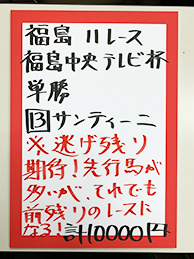 福島 11レース
福島中央テレビ杯
単勝
13 サンティーニ
※逃げ残り
期待!先行馬が
多いが、それでも
前残りのレースに
なる!計10000円